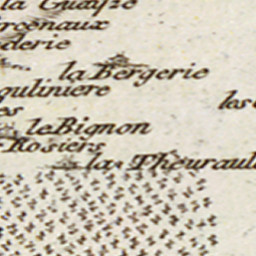 la Guayre
rcenaux
derie
la Bergerie
quliniere
les
es
le Bignon
Rosiers
la Theuraul